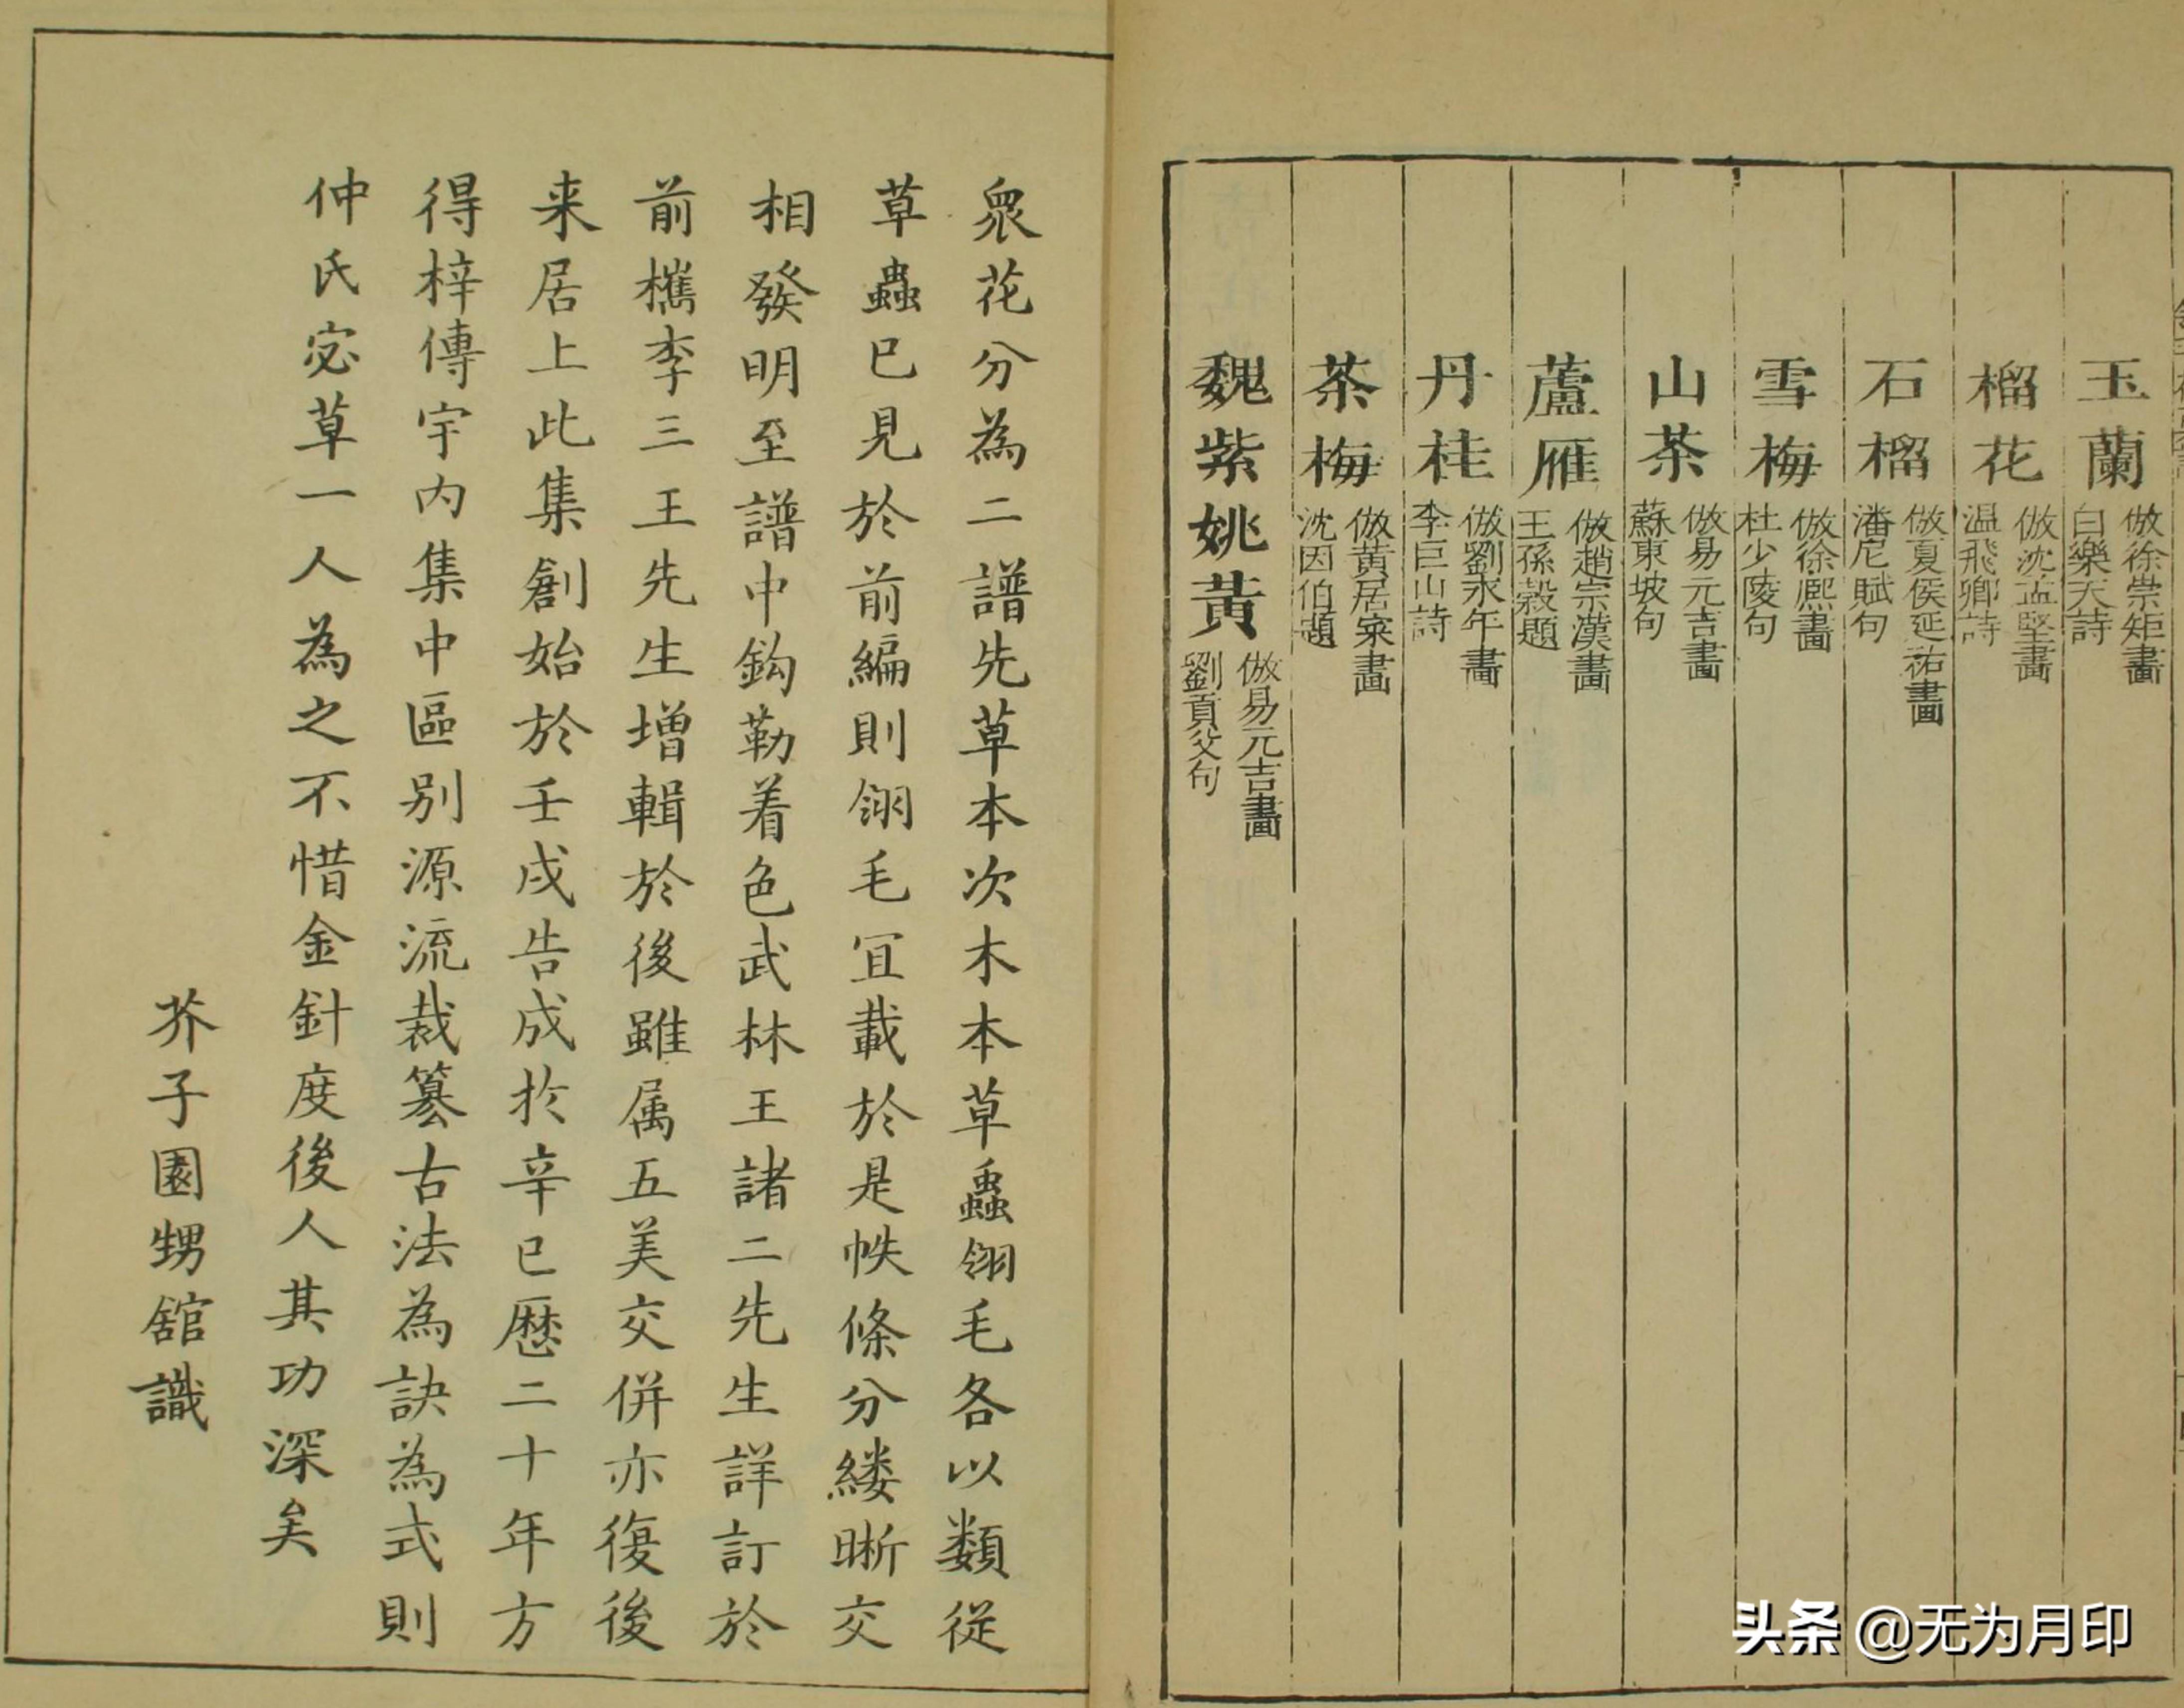 玉蘭 倣徐崇矩畫 白樂天詩
榴花 倣沈孟堅畫 温飛卿詩
石榴 倣夏侯延祐畫 潘尼賦句
雪梅 倣徐熈畫 杜少陵句
山茶 倣易元吉畫 蘇東坡句
蘆雁 倣趙宗漢畫 王孫穀題
丹桂 倣劉永年畫 李巨山詩
茶梅 倣黃居寀畫 沈因伯題
魏紫姚黃 倣易元吉畫 劉貢父句
衆花分為二譜先草本次木本草蟲翎毛各以類従
草蟲已見於前編則翎毛宜載於是帙條分縷晰交
相發明至譜中鈎勒着色武林王諸二先生詳訂於
前檇李三王先生増輯於後雖属五美交併亦復後
来居上此集創始於壬戌告成扵辛巳歷二十年方
得梓傳宇內集中區别源流裁纂古法為訣為式則
仲氏宓草一人為之不惜金針度後人其功深矣
芥子園甥舘識
头条 @无为月印